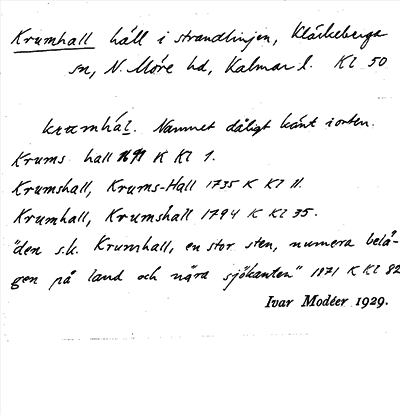 Krumhall häll i strandlinjen, Kläckeberga
sn, N. Möre hd, Kalmar l. Kl 50
Namnet dåligt känt i orten.
Krums hall 1691 K Kl 1.
Krumshall, Krums-Hall 1735 K Kl 11.
Krumhall, Krumshall 1794 K Kl 35.
"den s.k. Krumhall, en stor sten, numera belä-
gen på land och nära sjökanten" 1871 K Kl 82
Ivar Modéer 1929.